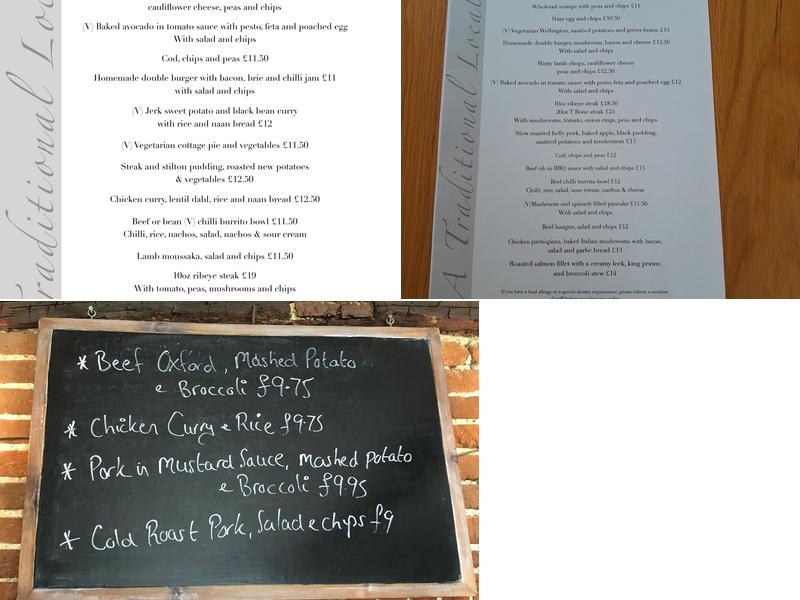 cauliflower cheese, peas and chips
(V) Baked avocado in tomato sauce with pesto, feta and poached egg
With salad and chips
Cod, chips and peas £11.50
Homemade double burger with bacon, brie and chilli jam £11
with salad and chips
(V) Jerk sweet potato and black bean curry
with rice and naan bread £12
(V) Vegetarian cottage pie and vegetables £11.50
Steak and stilton pudding, roasted new potatoes
& vegetables £12.50
Chicken curry, lentil dahl, rice and naan bread £12.50
Beef or bean (V) chilli burrito bowl £11.50
Chilli, rice, nachos, salad, nachos & sour cream
Lamb moussaka, salad and chips £11.50
10oz ribeye steak £19
With tomato, peas, mushrooms and chips
Traditional Loc
Wholetail scampi with peas and chips £11
Ham egg and chips £10.50
(V) Vegetarian Wellington, sautéed potatoes and green beans £13
Homemade double burger, mushroom, bacon and cheese £12.50
With salad and chips
Minty lamb chops, cauliflower cheese
peas and chips £12.50
(V) Baked avocado in tomato sauce with pesto, feta and poached egg £12
With salad and chips
10oz ribeye steak £18.50
20oz T Bone steak £24
With mushrooms, tomato, onion rings, peas and chips
Slow roasted belly pork, baked apple, black pudding,
sautéed potatoes and tenderstem £13
Cod, chips and peas £12
Beef rib in BBQ sauce with salad and chips £15
Beef chilli burrito bowl £12
Chilli, rice, salad, sour cream, nachos & cheese
(V)Mushroom and spinach filled pancake £11.50
With salad and chips
Beef lasagne, salad and chips £12
Chicken parmigana, baked Italian mushrooms with bacon,
salad and garlic bread £13
Roasted salmon fillet with a creamy leek, king prawn
and broccoli stew £14
If you have a food allergy or a special dietary requirement, please inform a member
A Traditional Local
* Beef Oxford, Mashed Potato
e Broccoli £9.75
* Chicken Curry e Rice £9.75
* Pork in Mustard Sauce, mashed potato
e Broccoli £9.95
* Cold Roast Pork, Salad e chips £9